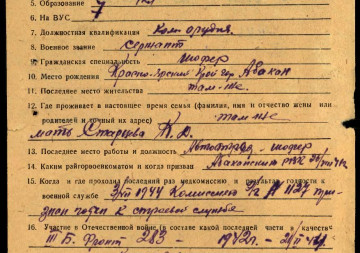 5. Образование 7 кл
6. На ВУС
7. Должностная квалификация Ком. орудия.
8. Военное звание сержант
9. Гражданская специальность шофер
10. Место рождения Красно-Ярский Край гор. Абакан
11. Последнее место жительства там-же.
12. Где проживает в настоящее время семья (фамилия, имя и отчество жены или
родителей и точный их адрес) там-же
мать Старцева А. Д.
13. Последнее место работы и должность шофер
14. Каким райгорвоенкоматом и когда призван Абаканским РВК
15. Когда и где проходил последний раз медкомиссию и годности к
военной службе 1944 Комиссией з/а 1137 при-
знан годен к строевой службе
16. Участие в Отечественной войне (в составе какой последней части и качестве
III Б. Фронт 283 — 1942г. —